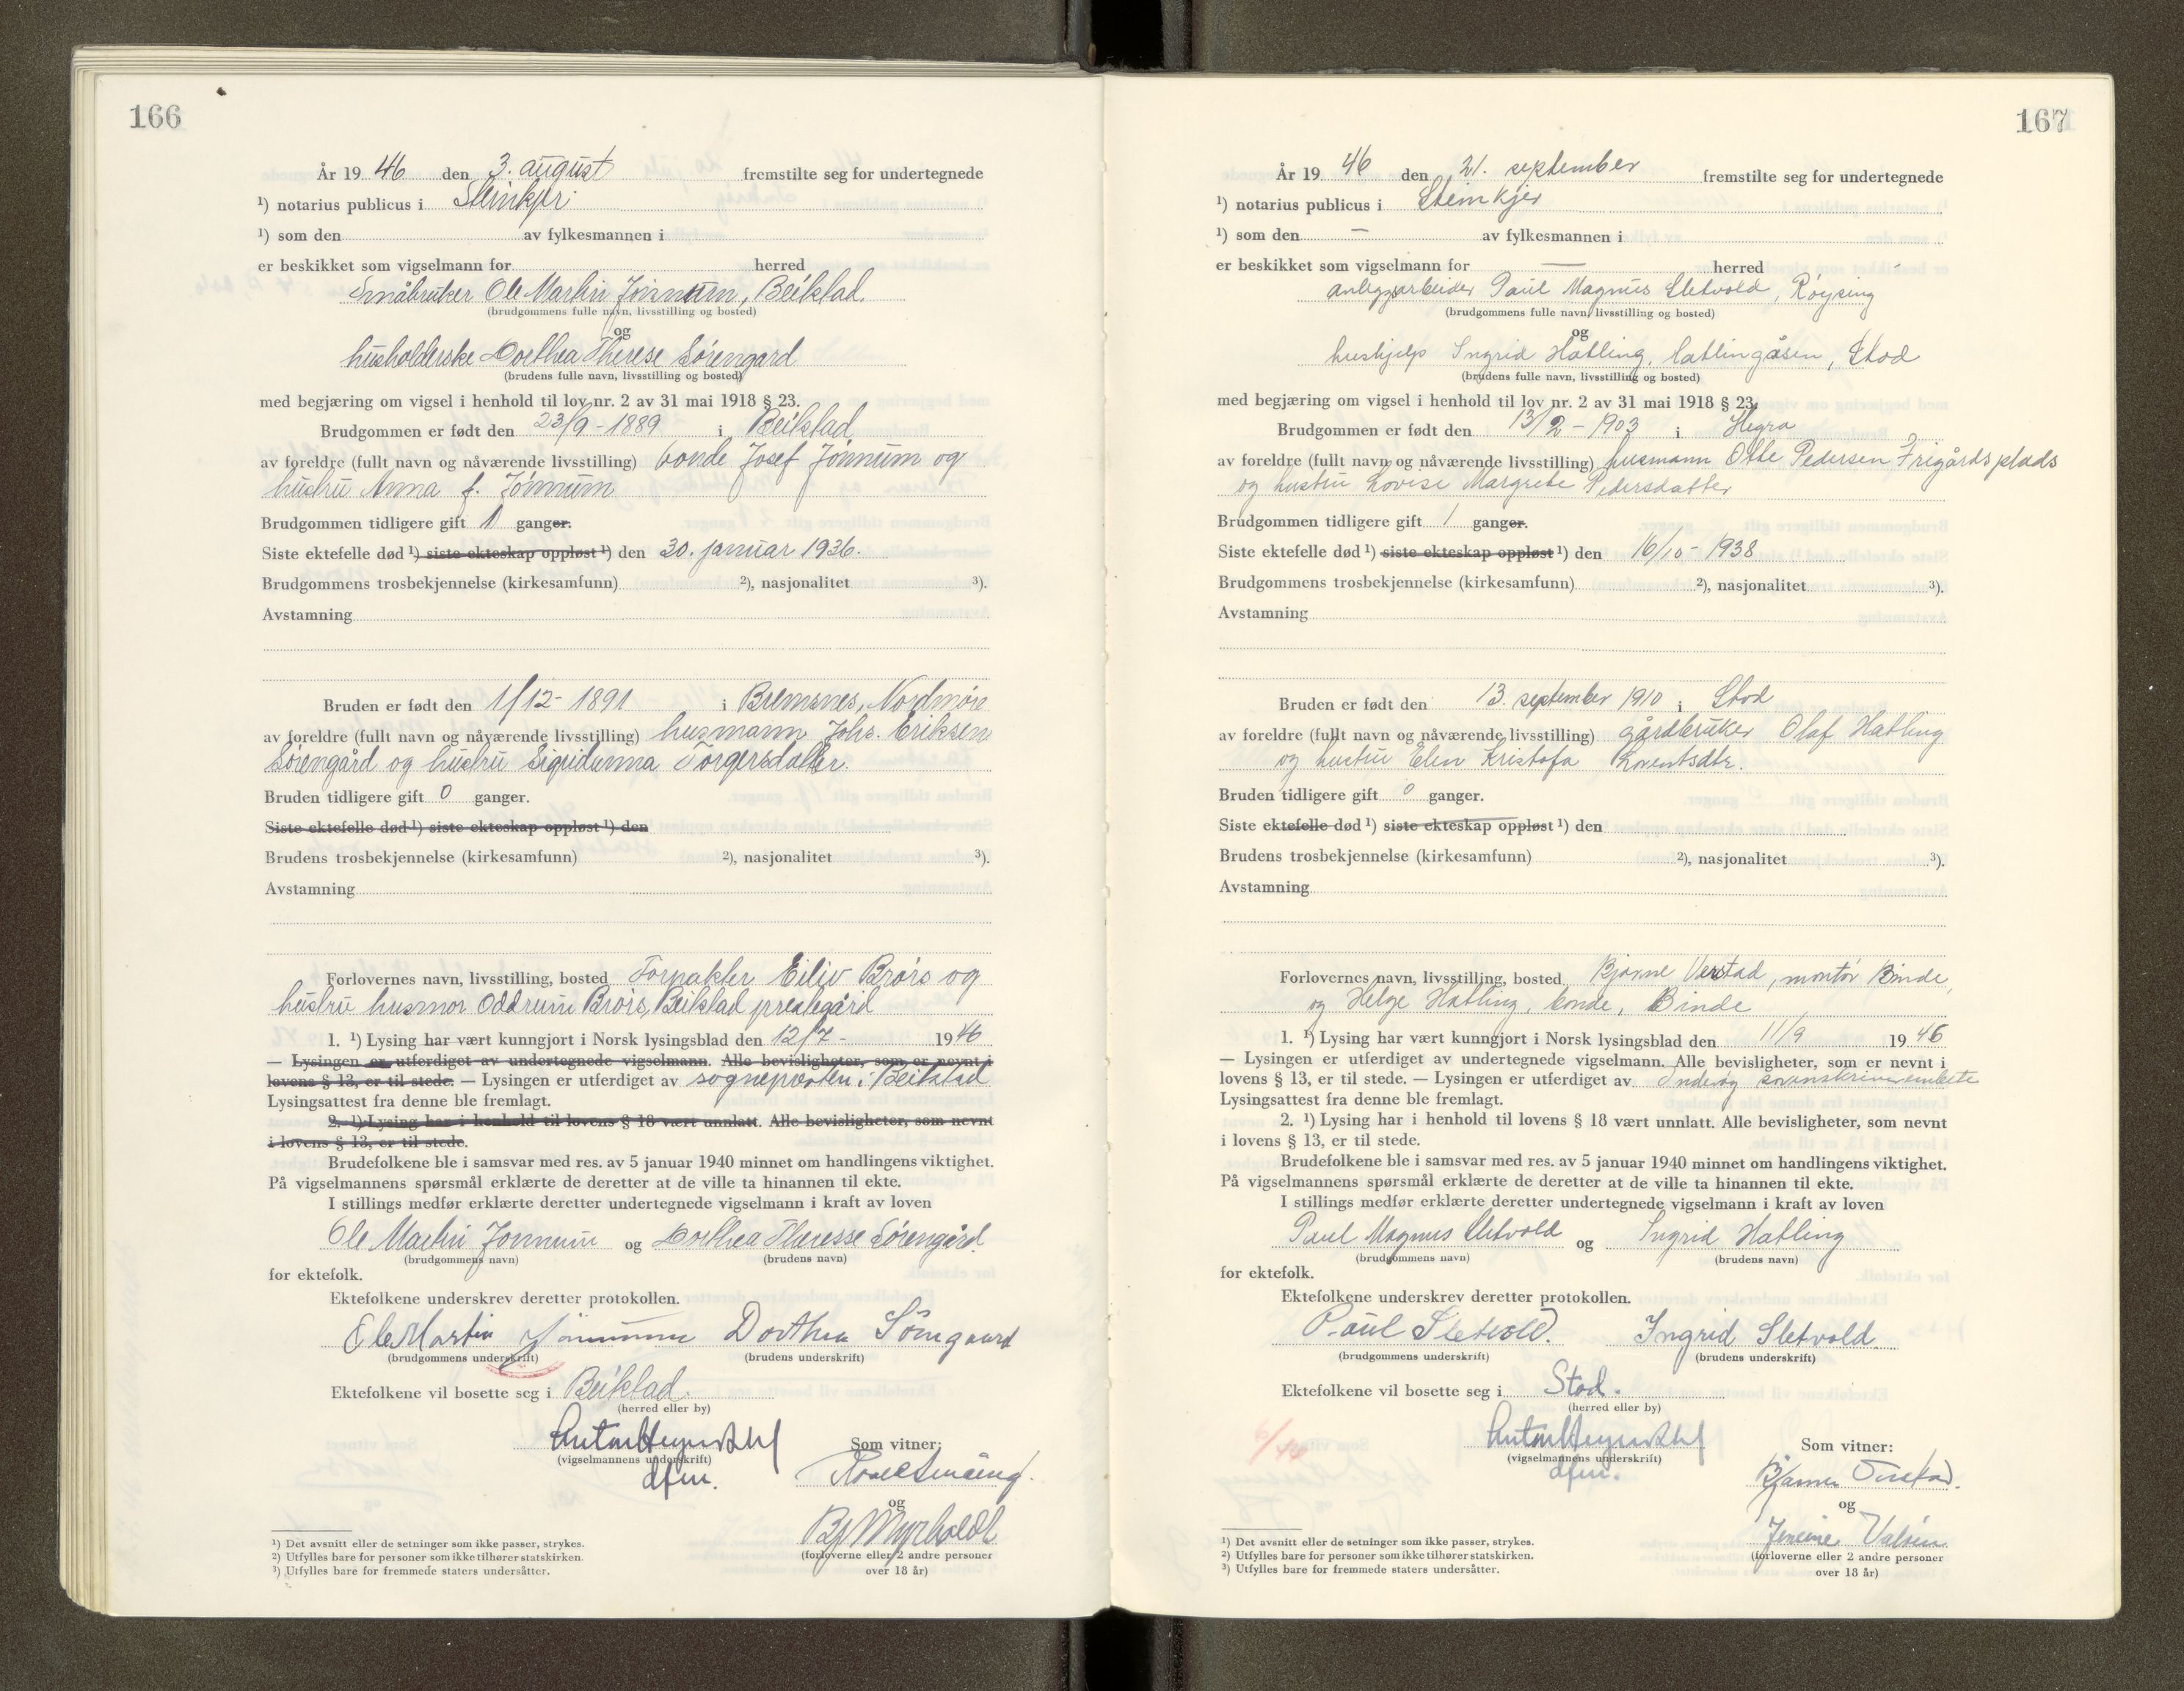 166
År 19 46 den 3. august fremstilte seg for undertegnede
¹) notarius publicus i Steinkjer
¹) som den av fylkesmannen i
er beskikket som vigselmann for herred
Småbruker Ole Martin Jønnum, Beitstad
(brudgommens fulle navn, livsstilling og bosted)
og
husholderske Dorthea Therese Sörengard
(brudens fulle navn, livsstilling og bosted)
med begjæring om vigsel i henhold til lov nr. 2 av 31 mai 1918 § 23.
Brudgommen er født den 23/9 - 1889 i Beitstad
av foreldre (fullt navn og nåværende livsstilling) bonde Josef Jönnum og
hustru Anna f. Jönnum
Brudgommen tidligere gift 1 ganger.
Siste ektefelle død ¹) siste ekteskap oppløst ¹) den 30. januar 1936.
Brudgommens trosbekjennelse (kirkesamfunn) ²), nasjonalitet ³).
Avstamning
Bruden er født den 1/12 - 1891 i Bremsnes, Nordmöre
av foreldre (fullt navn og nåværende livsstilling) husmann Johs. Eriksen
Sörengård og hustru Sigridanna Torgersdatter.
Bruden tidligere gift 0 ganger.
Siste ektefelle død ¹) siste ekteskap oppløst ¹) den
Brudens trosbekjennelse (kirkesamfunn) ²), nasjonalitet ³).
Avstamning
Forlovernes navn, livsstilling, bosted Forpakter Eiliv Brörs og
hustru husmor Oddrun Brörs, Beitstad prestegård
1. ¹) Lysing har vært kunngjort i Norsk lysingsblad den 12/7 - 1946
— Lysingen er utferdiget av undertegnede vigselmann. Alle bevisligheter, som er nevnt i
lovens § 13, er til stede. — Lysingen er utferdiget av sognepresten i Beitstad
Lysingsattest fra denne ble fremlagt.
2. ¹) Lysing har i henhold til lovens § 18 vært unnlatt. Alle bevisligheter, som nevnt
i lovens § 13, er til stede.
Brudefolkene ble i samsvar med res. av 5 januar 1940 minnet om handlingens viktighet.
På vigselmannens spørsmål erklærte de deretter at de ville ta hinannen til ekte.
I stillings medfør erklærte deretter undertegnede vigselmann i kraft av loven
Ole Martin Jönnum og Dorthea Theresse Sörengård
(brudgommens navn) (brudens navn)
for ektefolk.
Ektefolkene underskrev deretter protokollen.
Ole Martin Jönnum Dorthea Sörngaard
(brudgommens underskrift) (brudens underskrift)
Ektefolkene vil bosette seg i Beitstad.
(herred eller by)
(vigselmannens underskrift)
dfm.
Som vitner:
og
(forloverne eller 2 andre personer
over 18 år)
¹) Det avsnitt eller de setninger som ikke passer, strykes.
²) Utfylles bare for personer som ikke tilhører statskirken.
³) Utfylles bare for fremmede staters undersåtter.
167
År 19 46 den 21. september fremstilte seg for undertegnede
¹) notarius publicus i Steinkjer
¹) som den — av fylkesmannen i
er beskikket som vigselmann for — herred
anleggsarbeider Paul Magnus Sletvold, Röysing
(brudgommens fulle navn, livsstilling og bosted)
og
hushjelp Ingrid Hatling, Hatlingåsen, Stod
(brudens fulle navn, livsstilling og bosted)
med begjæring om vigsel i henhold til lov nr. 2 av 31 mai 1918 § 23.
Brudgommen er født den 13/2 - 1903 i Hegra
av foreldre (fullt navn og nåværende livsstilling) husmann Otte Pedersen Frigårdsplads
og hustru Lovise Margrete Pedersdatter
Brudgommen tidligere gift 1 ganger.
Siste ektefelle død ¹) siste ekteskap oppløst ¹) den 16/10 - 1938
Brudgommens trosbekjennelse (kirkesamfunn) ²), nasjonalitet ³).
Avstamning
Bruden er født den 13. september 1910 i Stod
av foreldre (fullt navn og nåværende livsstilling) gårdbruker Olaf Hatling
og hustru Elen Kristofa Lorentsdtr.
Bruden tidligere gift 0 ganger.
Siste ektefelle død ¹) siste ekteskap oppløst ¹) den
Brudens trosbekjennelse (kirkesamfunn) ²), nasjonalitet ³).
Avstamning
Forlovernes navn, livsstilling, bosted Bjarne Verstad, montör Binde,
og Helge Hatling, bonde, Binde
1. ¹) Lysing har vært kunngjort i Norsk lysingsblad den 11/9 1946
— Lysingen er utferdiget av undertegnede vigselmann. Alle bevisligheter, som er nevnt i
lovens § 13, er til stede. — Lysingen er utferdiget av Inderöy sorenskriverembete
Lysingsattest fra denne ble fremlagt.
2. ¹) Lysing har i henhold til lovens § 18 vært unnlatt. Alle bevisligheter, som nevnt
i lovens § 13, er til stede.
Brudefolkene ble i samsvar med res. av 5 januar 1940 minnet om handlingens viktighet.
På vigselmannens spørsmål erklærte de deretter at de ville ta hinannen til ekte.
I stillings medfør erklærte deretter undertegnede vigselmann i kraft av loven
Paul Magnus Sletvold og Ingrid Hatling
(brudgommens navn) (brudens navn)
for ektefolk.
Ektefolkene underskrev deretter protokollen.
Paul Sletvold. Ingrid Sletvold.
(brudgommens underskrift) (brudens underskrift)
Ektefolkene vil bosette seg i Stod.
(herred eller by)
(vigselmannens underskrift)
dfm.
Som vitner:
Bjarne Verstad.
og
(forloverne eller 2 andre personer
over 18 år)
¹) Det avsnitt eller de setninger som ikke passer, strykes.
²) Utfylles bare for personer som ikke tilhører statskirken.
³) Utfylles bare for fremmede staters undersåtter.